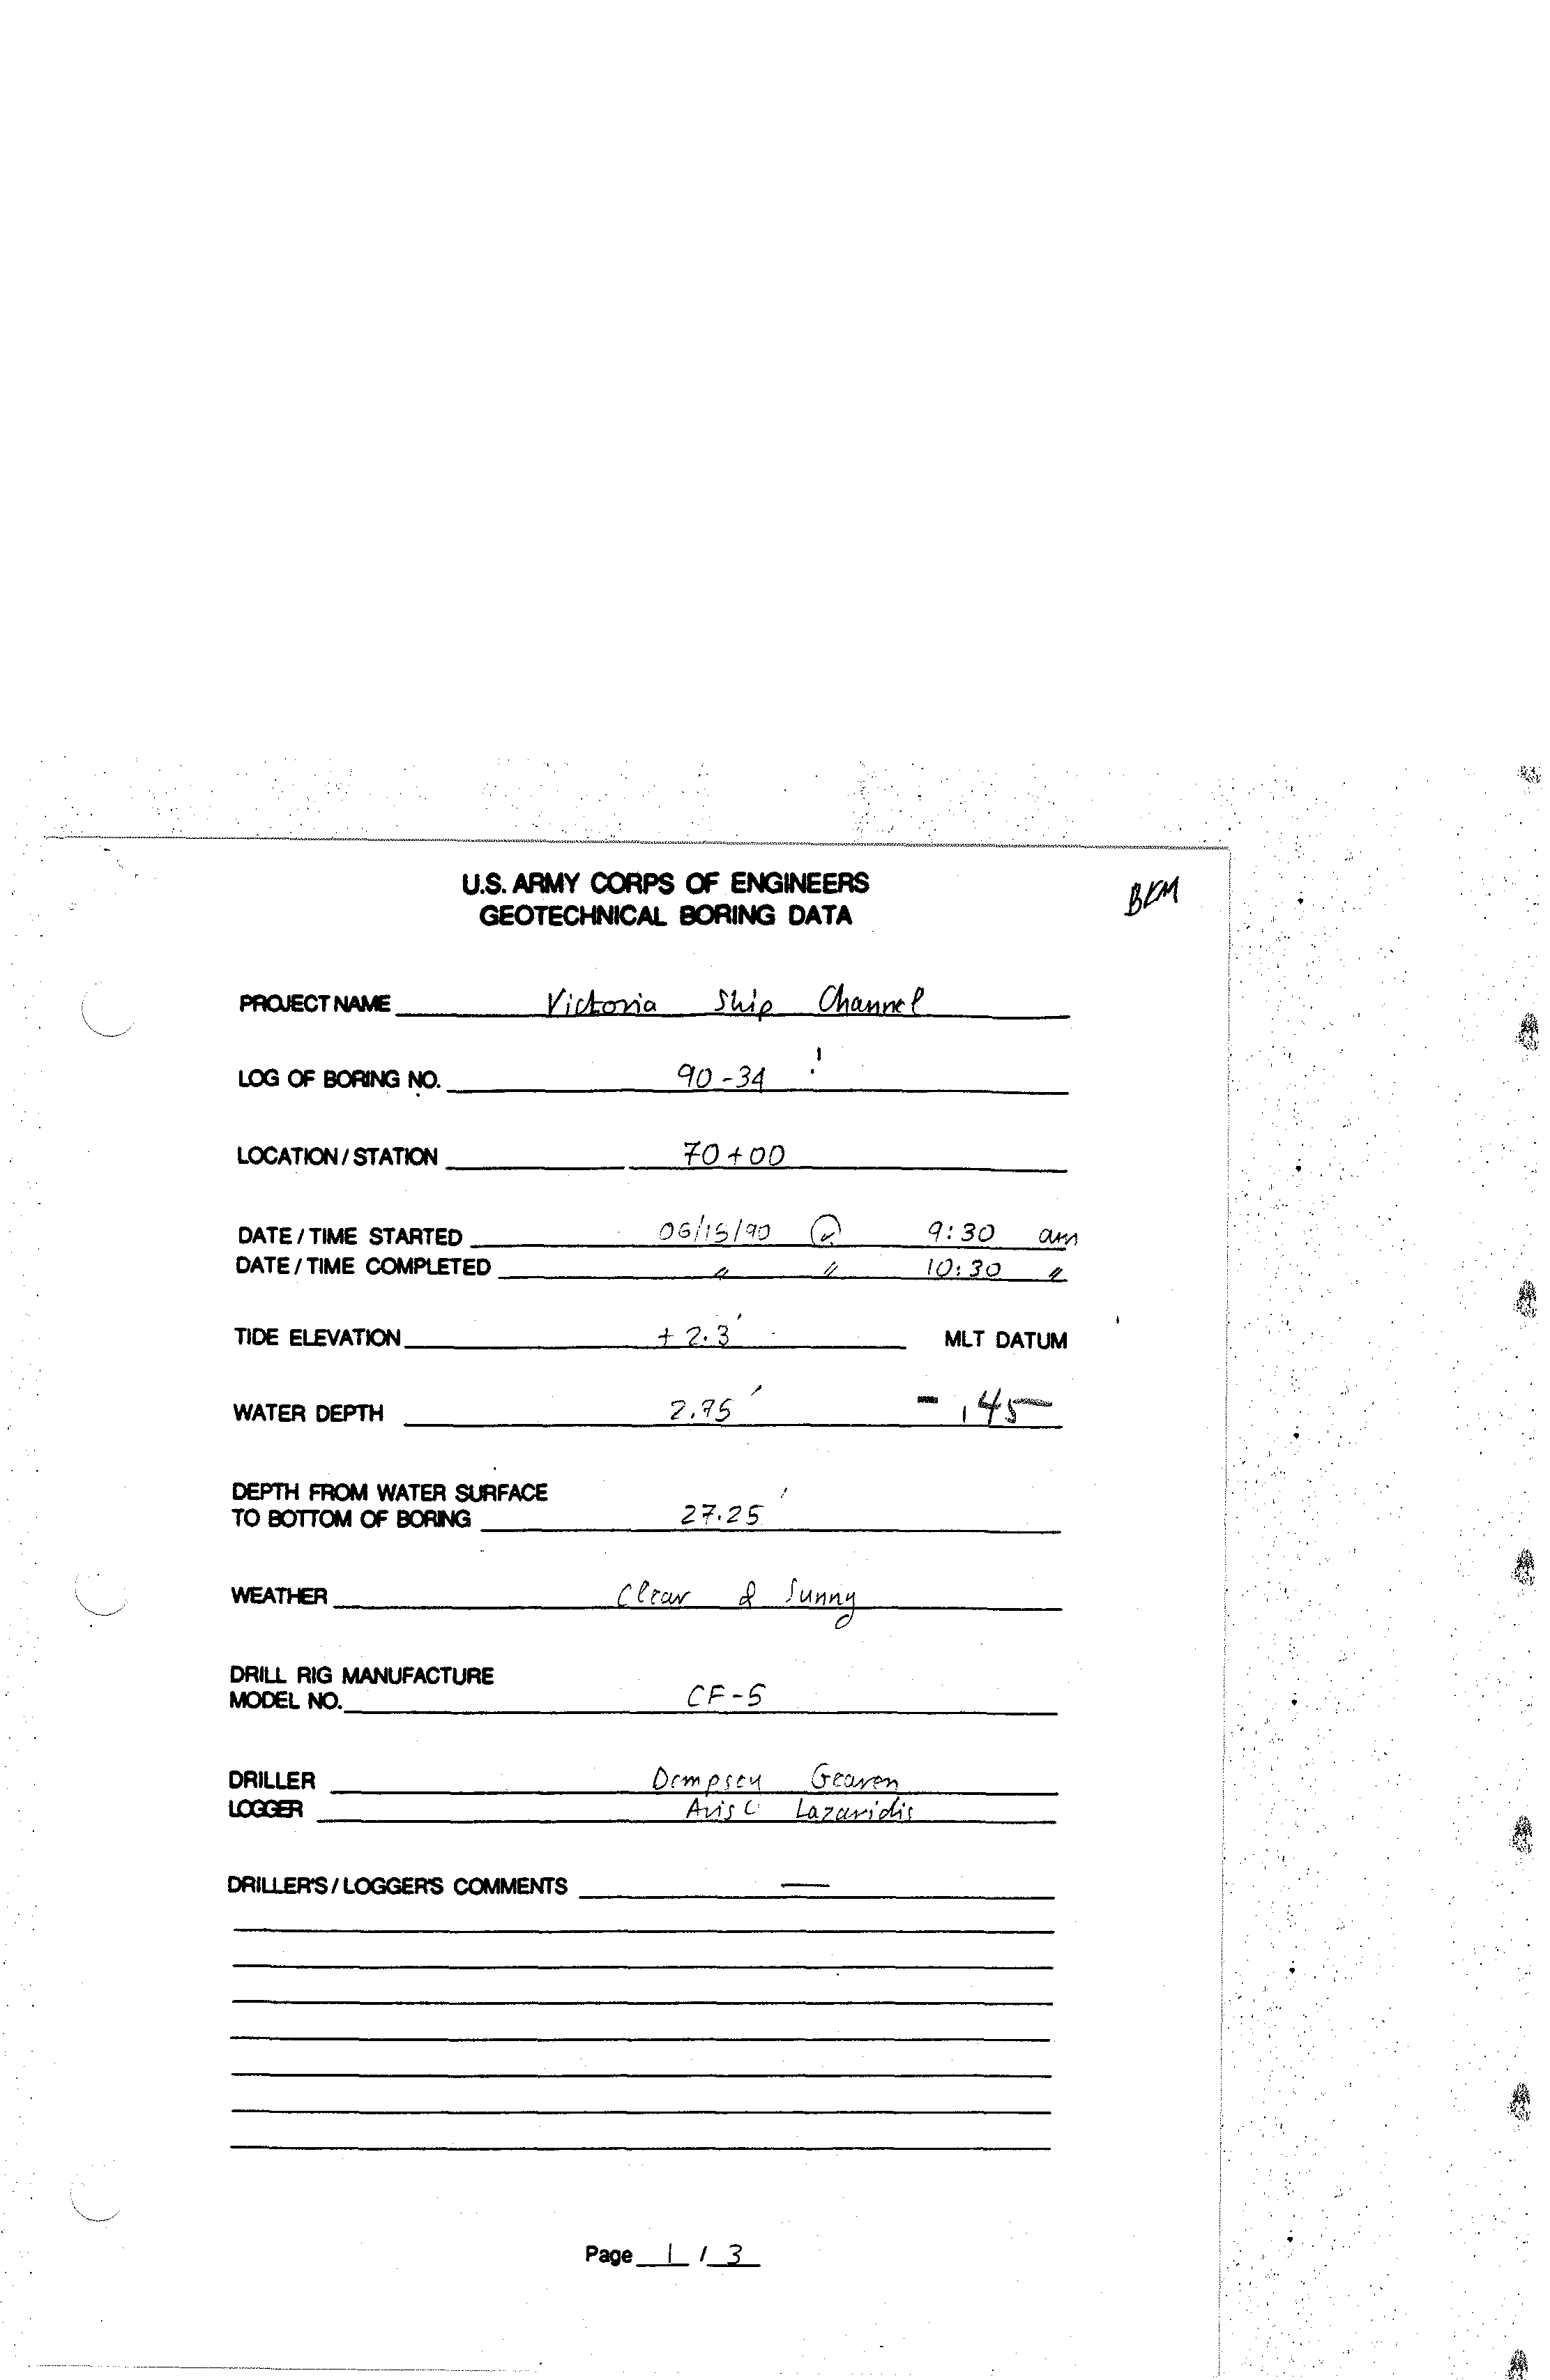 U.S. ARMY CORPS OF ENGINEERS
BKM
GEOTECHNICAL BORING DATA
PROJECT NAME Victoria Ship Channel
LOG OF BORING NO. 90-34
LOCATION / STATION 70+00
DATE / TIME STARTED 06/15/90 @ 9:30 am
DATE / TIME COMPLETED " " 10:30 "
TIDE ELEVATION +2.3' MLT DATUM
WATER DEPTH 2.75' -.45
DEPTH FROM WATER SURFACE
TO BOTTOM OF BORING 27.25'
WEATHER Clear & Sunny
DRILL RIG MANUFACTURE
MODEL NO. CF-5
DRILLER Dempsey
LOGGER Lazaridis
DRILLER'S / LOGGER'S COMMENTS —
Page 1 / 3